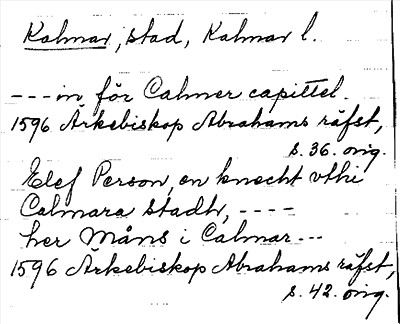 Kalmar, stad, Kalmar l.
---in för Calmer capittel.
1596 Ärkebiskop Abrahams räfst,
s. 36. orig.
Elef Person, en knecht vthi
Calmara Stadh, ----
her Måns i Calmar---
1596 Ärkebiskop Abrahams räfst,
s. 42. orig.